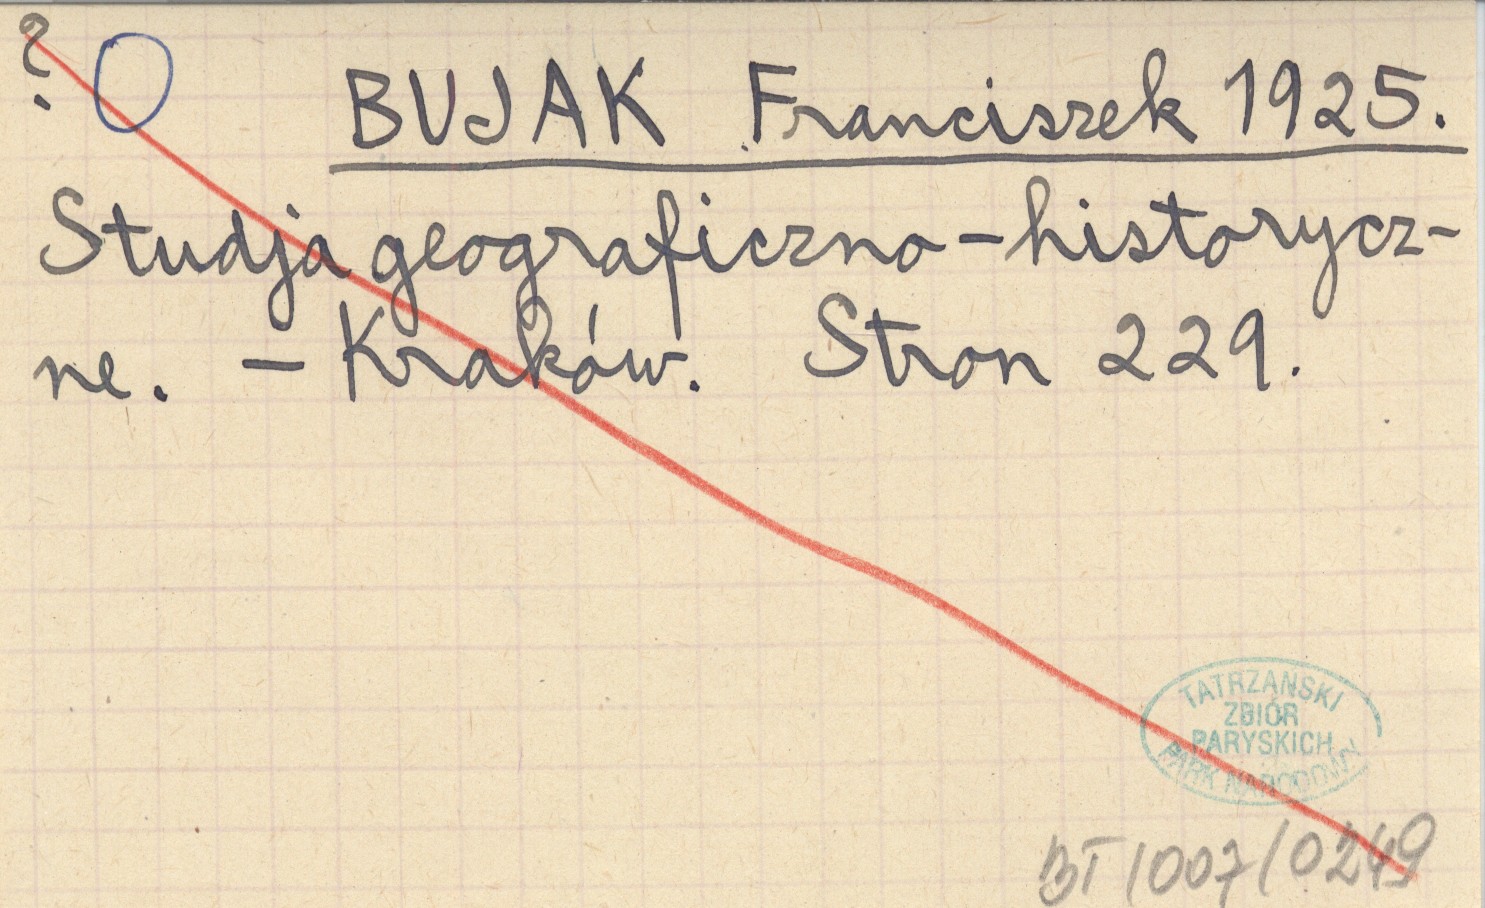 ?
BUJAK Franciszek 1925.
Studja geograficzno-historycz-
ne. - Kraków. Stron 229.
TATRZAŃSKI
ZBIÓR
PARYSKICH
PARK NARODOWY
BT/007/0249